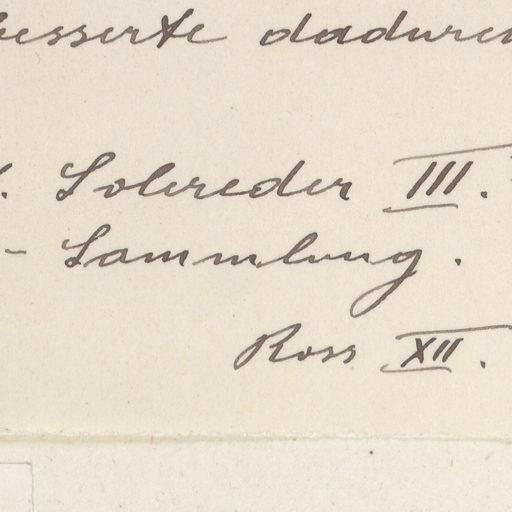 besserte dadurch
. Schreder III.
- Sammlung.
Ross XII.